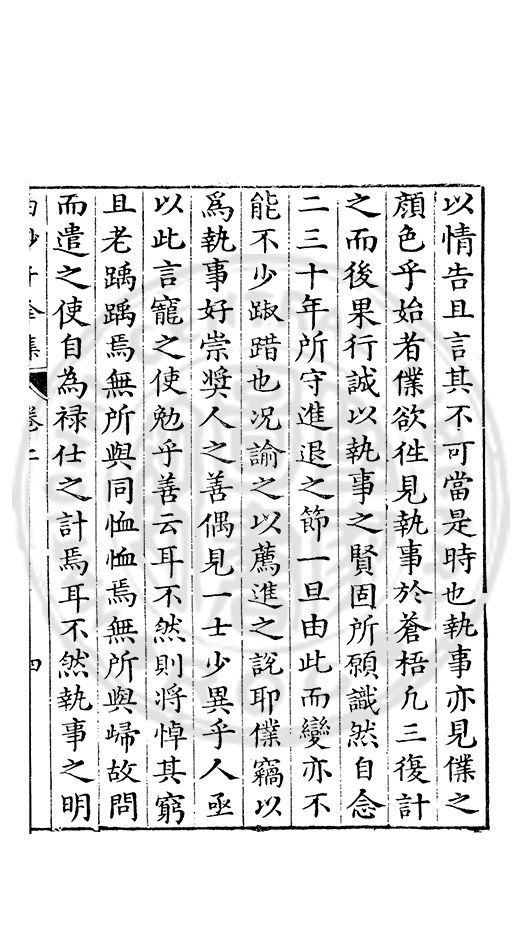 以情告且言其不可當是時也執事亦見僕之
顔色乎始者僕欲徃見執事於蒼梧凢三復計
之而後果行誠以執事之賢固所願識然自念
二三十年所守進退之節一旦由此而變亦不
能不少踧踖也况諭之以薦進之說耶僕竊以
爲執事好崇奬人之善偶見一士少異乎人亟
以此言寵之使勉乎善云耳不然則將悼其窮
且老踽踽焉無所與同恤恤焉無所與㱕故問
而遣之使自為禄仕之計焉耳不然執事之明